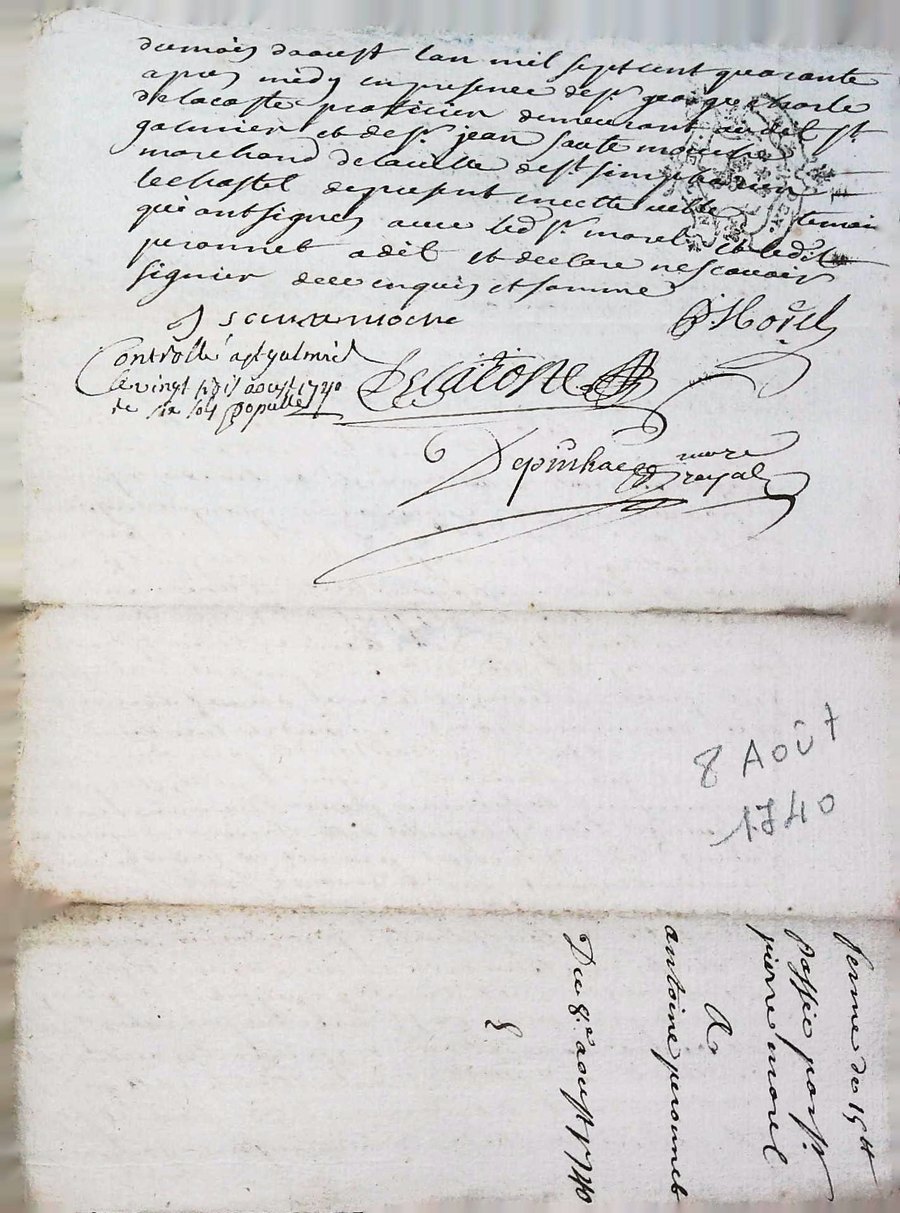 du mois daoust lan mil sept cent quarante
apres midy en presence de sr. george charle
delacoste praticien demeurant au dit st.
galmier et de sr. jean
marchand de la ville de st. simphorien
le chastel de present en cette ville temoins
qui ont signes avec led. sr. morel et ledit
peronnet a dit et declare ne scavoir
signier de ce enquis et somme
P. Morel
Controllé a st galmier
le vingt aoust 1740
six sols
Delacoste
Depinhac nore
royal
8 Août
1740
ferme de 15tt
passée par sr.
pierre morel
A
antoine peronnet
Du 8e. aoust 1740